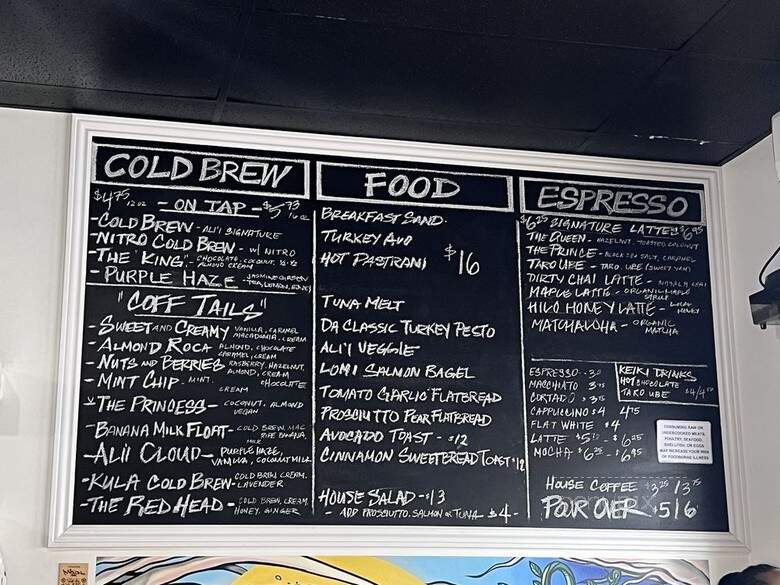 COLD BREW
$4.75 12oz - ON TAP - $5.73 16oz
- COLD BREW - ALI'I SIGNATURE
- NITRO COLD BREW - W/ NITRO
- THE "KING" - CHOCOLATE, COCONUT,
ALMOND CREAM
- PURPLE HAZE - JASMINE GREEN
TEA, LEMON,
"COFF TAILS"
- SWEET AND CREAMY VANILLA, CARAMEL
MACADAMIA, CREAM
- ALMOND ROCA ALMOND, CHOCOLATE
CARAMEL, CREAM
- NUTS AND BERRIES RASPBERRY, HAZELNUT,
ALMOND, CREAM
- MINT CHIP - MINT, CHOCOLATE
CREAM
* THE PRINCESS - COCONUT, ALMOND
VEGAN
- BANANA MILK FLOAT - COLD BREW, MAC
BANANA,
MILK
- ALI'I CLOUD - PURPLE HAZE,
VANILLA, COCONUT MILK
- KULA COLD BREW - COLD BREW, CREAM,
LAVENDER
- THE RED HEAD - COLD BREW, CREAM
HONEY, GINGER
FOOD
BREAKFAST SAND.
TURKEY AVO
HOT PASTRAMI $16
TUNA MELT
DA CLASSIC TURKEY PESTO
ALI'I VEGGIE
LOMI SALMON BAGEL
TOMATO GARLIC FLATBREAD
PROSCIUTTO PEAR FLATBREAD
AVOCADO TOAST - $12
CINNAMON SWEETBREAD TOAST $12
HOUSE SALAD - $13
- ADD PROSCIUTTO, SALMON OR TUNA $4 -
ESPRESSO
$6.25 SIGNATURE LATTES $6.95
THE QUEEN - HAZELNUT, TOASTED COCONUT
THE PRINCE - BLACK SEA SALT, CARAMEL
TARO UBE - TARO, UBE (SWEET YAM)
DIRTY CHAI LATTE - MASALA CHAI
MAPLE LATTE - ORGANIC MAPLE
SYRUP
HILO HONEY LATTE - LOCAL
HONEY
MATCHALOHA - ORGANIC
MATCHA
ESPRESSO
MACCHIATO
CORTADO
CAPPUCCINO $4 4.75
FLAT WHITE $4
LATTE $6.25
MOCHA $6.25 - $6.95
KEIKI DRINKS
HOT CHOCOLATE
TARO UBE
CONSUMING RAW OR
UNDERCOOKED MEATS,
POULTRY, SEAFOOD,
SHELLFISH, OR EGGS
MAY INCREASE YOUR RISK
OF FOODBORNE ILLNESS
HOUSE COFFEE 3.25 / 3.75
POUR OVER $5/6